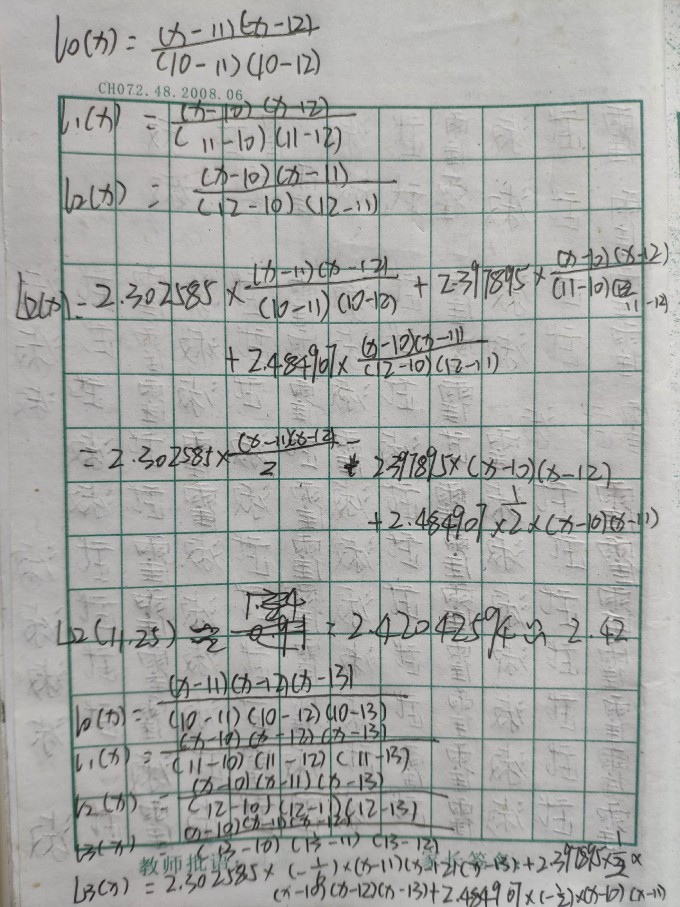 l₀(x) = (x-11)(x-12) / (10-11)(10-12)
CH072.48.2008.06
l₁(x) = (x-10)(x-12) / (11-10)(11-12)
l₂(x) = (x-10)(x-11) / (12-10)(12-11)
L₂(x) = 2.302585 × (x-11)(x-12) / (10-11)(10-12) + 2.397895 × (x-10)(x-12) / (11-10)(11-12)
+ 2.484907 × (x-10)(x-11) / (12-10)(12-11)
= 2.302585 × (x-11)(x-12) / 2 - 2.397895 × (x-10)(x-12)
+ 2.484907 × 1/2 × (x-10)(x-11)
L₂(11.25) ≈ = 2.420425 ≈ 2.42
l₀(x) = (x-11)(x-12)(x-13) / (10-11)(10-12)(10-13)
l₁(x) = (x-10)(x-12)(x-13) / (11-10)(11-12)(11-13)
l₂(x) = (x-10)(x-11)(x-13) / (12-10)(12-11)(12-13)
l₃(x) = (x-10)(x-11)(x-12) / (13-10)(13-11)(13-12)
教师批
L₃(x) = 2.302585 × (-1/6) × (x-11)(x-12)(x-13) + 2.397895 × 1/2 ×
(x-10)(x-12)(x-13) + 2.484907 × (-1/2) × (x-10)(x-11)